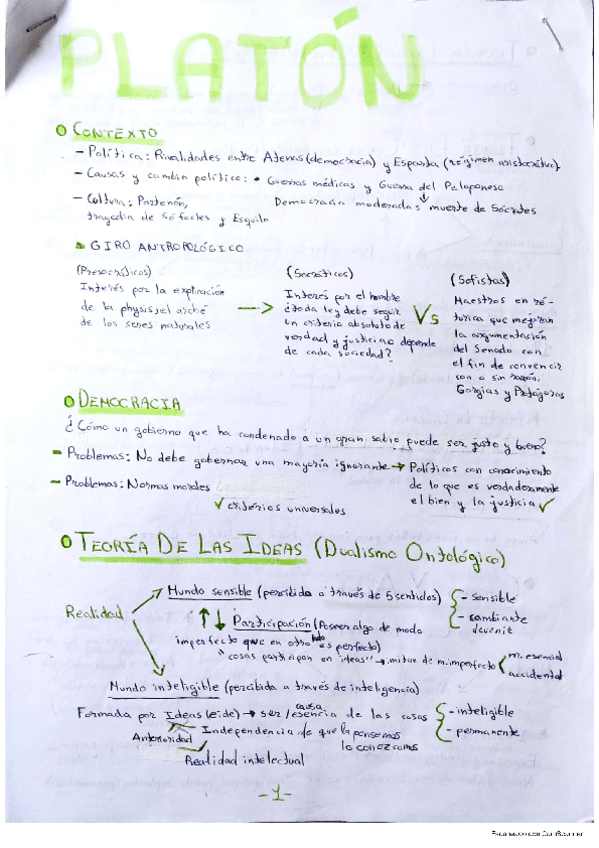 PLATÓN
CONTEXTO
- Política: Rivalidades entre Atenas (democracia) y Esparta (régimen aristocrático)
- Causas y cambio político: • Guerras médicas y Guerra del Peloponeso
Democracia moderada: muerte de Sócrates
- Cultura: Partenón,
tragedia de Sófocles y Esquilo
GIRO ANTROPOLÓGICO
(Presocráticos)
Interés por la explicación
de la physis, el arché
de los seres naturales
(Socráticos)
Interés por el hombre
¿toda ley debe seguir
un criterio absoluto de
verdad y justicia o depende
de cada sociedad?
Vs
(Sofistas)
Maestros en re-
tórica que mejoran
la argumentación
del Senado con
el fin de convencir
con o sin razón.
Gorgias y Protágoras
DEMOCRACIA
¿Cómo un gobierno que ha condenado a un gran sabio puede ser justo y bueno?
- Problemas: No debe gobernar una mayoría ignorante → Políticos con conocimiento
de lo que es verdaderamente
el bien y la justicia ✓
- Problemas: Normas morales
✓ criterios universales
TEORÍA DE LAS IDEAS (Dualismo Ontológico)
Realidad
Mundo sensible (percibida a través de 5 sentidos)
- sensible
- cambiante
devenit
Participación (Poseer algo de modo
imperfecto que en otro lado es perfecto)
"cosas participan en ideas" → mitar de m.imperfecto
m. esencial
accidental
Mundo inteligible (percibida a través de inteligencia)
Formada por Ideas (eide) → ser/causa/esencia de las cosas
- inteligible
- permanente
Anterioridad
Independencia de que la pensemos
lo conozcamos
Realidad intelectual
-1-